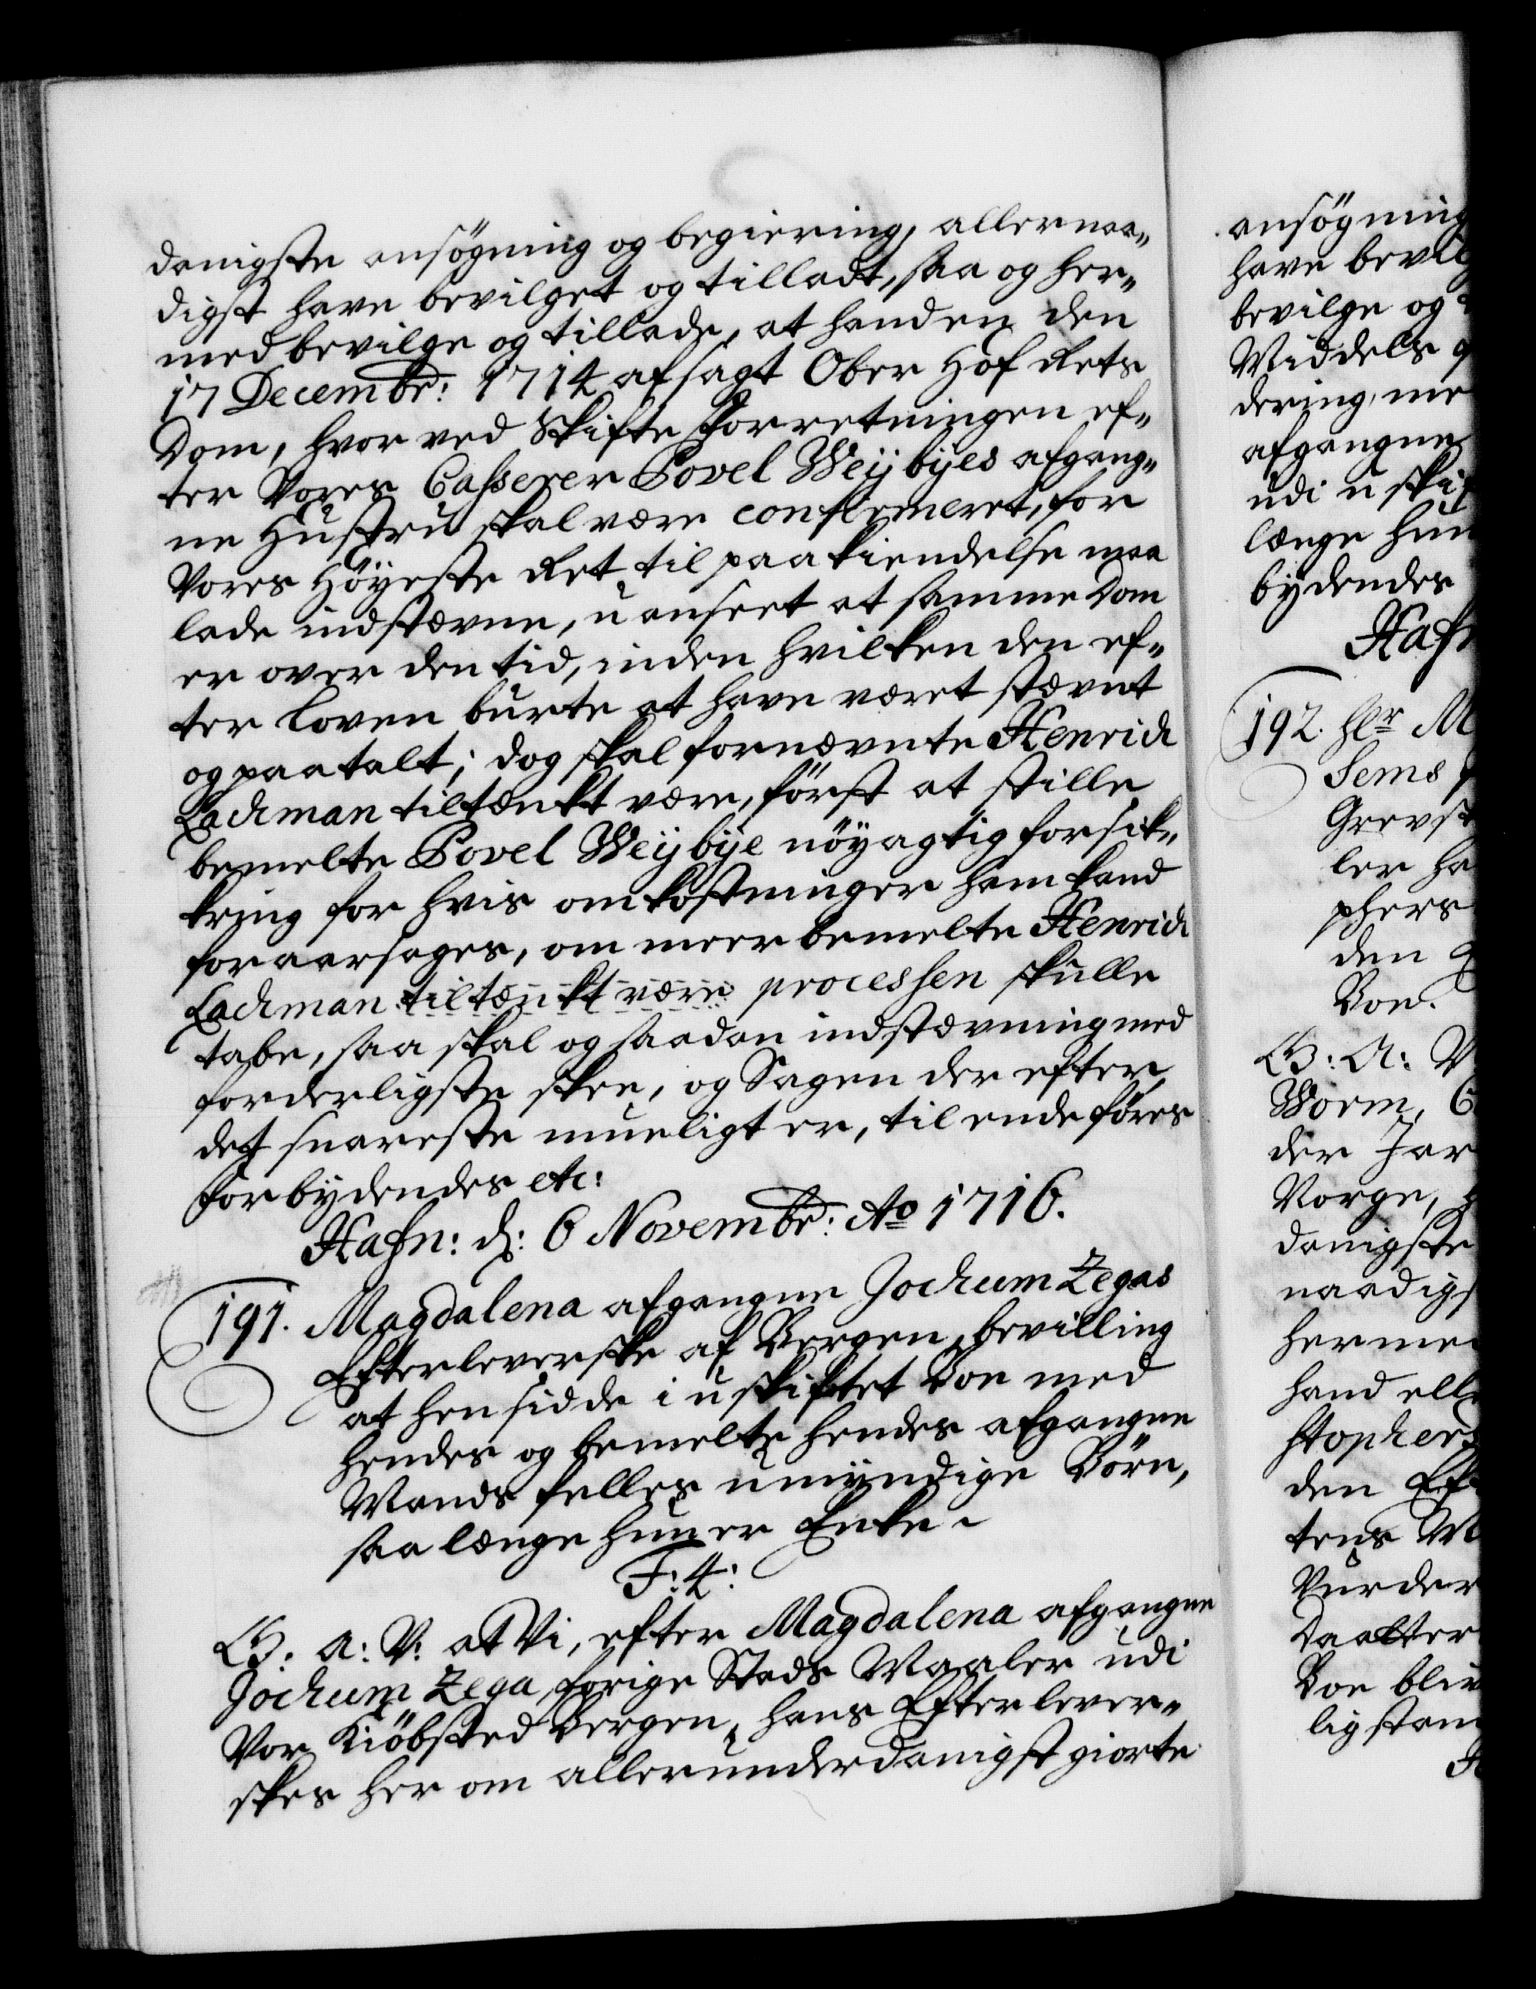 danigste ansögning og begiering, allernaa-
digst have bevilget og tilladt, saa og her-
med bevilge og tillade, at hand en den
17 Decembr: 1714 afsagt Ober Hof Rets
Dom, hvor ved Skifte Forretningen ef-
ter Vores Casserer Povel Weijbyes afgang-
ne Hustru skal være confirmeret, for
Vores Höyeste Ret til paakiendelse maa
lade indstævne, uanseet at samme Dom
er over den tid, inden hvilken den ef-
ter Loven burte at have været stævnt
og paatalt; dog skal fornævnte Henrich
Lachman tiltænkt være, först at stille
bemelte Povel Weijbye nöyagtig forsik-
kring for hvis omkostninger ham kand
foraarsages, om meerbemelte Henrich
Lachman tiltænkt være processen skulle
tabe, saa skal og saadan indstævning med
forderligste skee, og Sagen der efter,
det snareste mueligt er, til ende föres
Forbydendes etc:
Hafn: d: 6 Novembr: Ao 1716.
191. Magdalena afgangne Jochum Zegas
Efterleverske af Bergen, bevilling
at hensidde i uskiftet Boe med
hendes og bemelte hendes afgangne
Mands felles umyndige Börn,
saa længe hun er Enke
F: 4:
G: A: V: at Vi, efter Magdalena afgangne
Jochum Zega, forige Stads Maaler udi
Vor Kiöbsted Bergen, hans Efterlever-
skes her om allerunderdanigst giorte
ansögning
have bevilg
bevilge og
Middels
dering, me
afgangne
udi uskif
længe hun
bydendes
Hafn
192. Hr M
Sems
Grevst
ler ha
phers
den
Boe.
G: A: V
Worm,
der Jar
Norge,
danigste
naadigs
herme
hand elle
stophers
den Ef
tens M
Vurder
Daatter
Boe bliv
ligstam